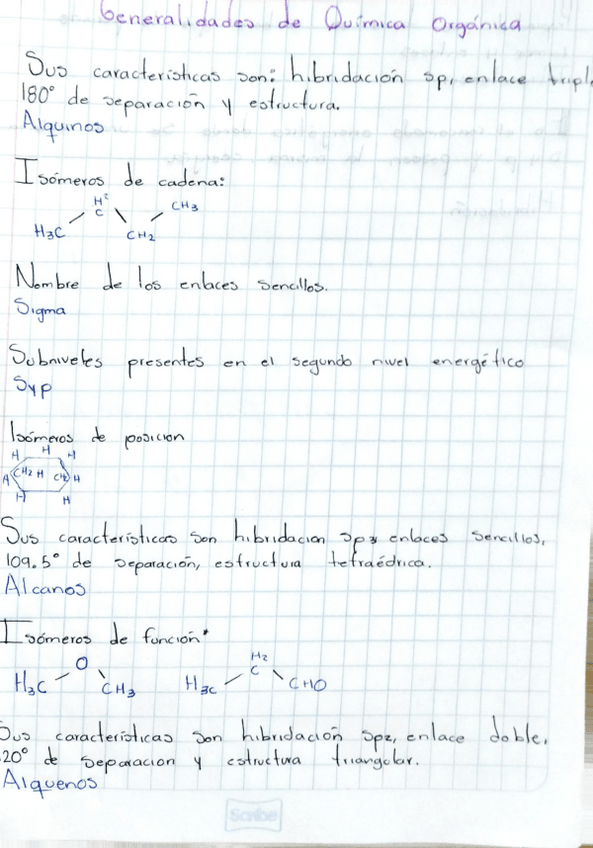 Generalidades de Química Orgánica
Sus características son: hibridación sp, enlace tripl
180° de separación y estructura.
Alquinos
Isómeros de cadena:
H² CH3
C
H3C CH2
Nombre de los enlaces sencillos.
Sigma
Subniveles presentes en el segundo nivel energético
S y p
Isómeros de posicion
H H H
H CH2 H CH2 H
H H
Sus características son hibridacion sp3 enlaces sencillos,
109.5° de separación, estructura tetraédrica.
Alcanos
Isómeros de función.
O H2
C
H3C CH3 H3C CHO
Sus características son hibridación sp2, enlace doble,
20° de separacion y estructura triangular.
Alquenos
Scribe